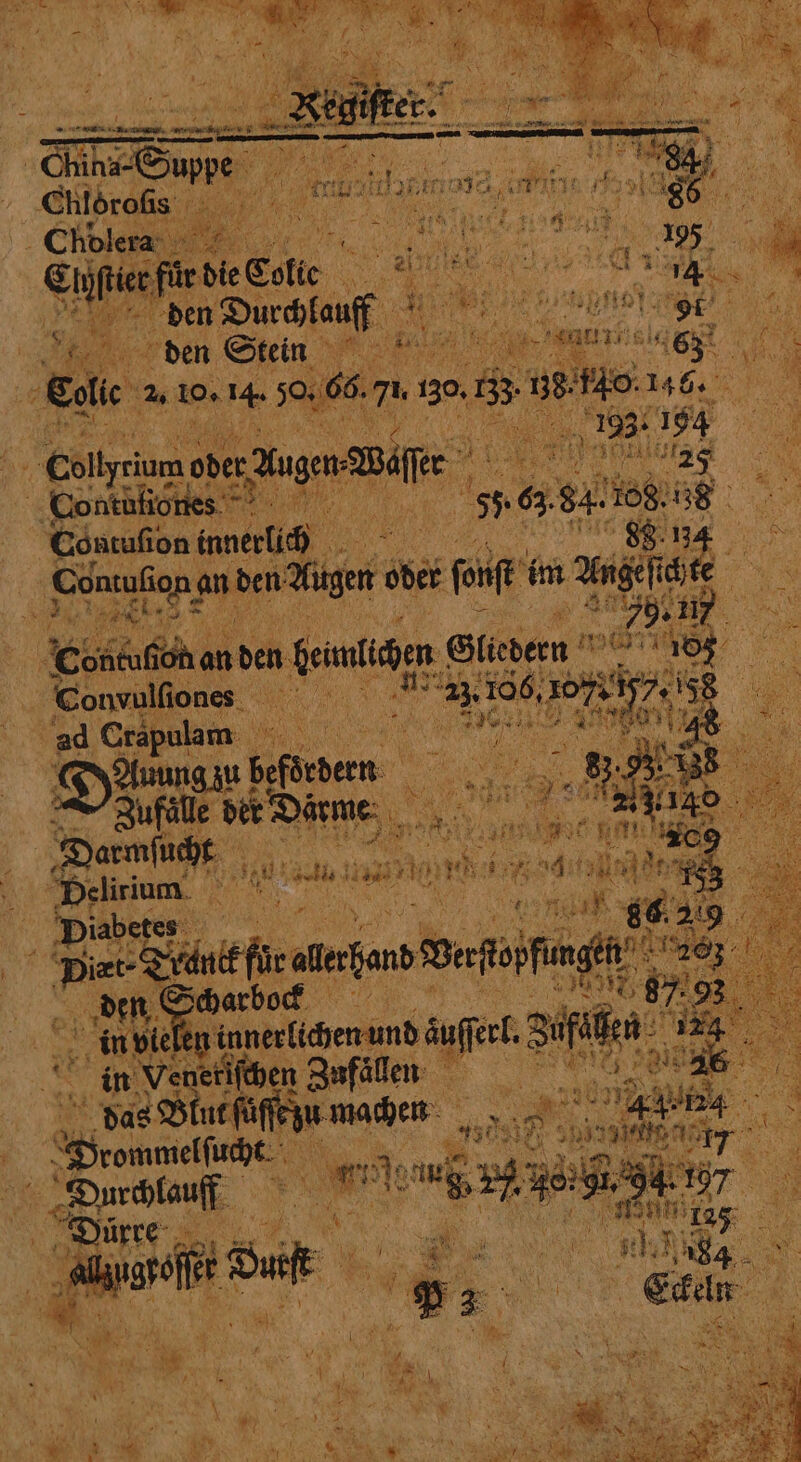 Regiſter.
China-Suppe 84
Chloroſis 86
Cholera 195
Clyſtier für die Colic 14
den Durchlauff 91
den Stein 63
Colic 2. 10. 14. 50. 66. 71. 130. 133. 138. 140. 146.
193. 194
Collyrium oder Augen-Waſſer 25
Contuſiones 55. 63. 84. 108. 138
Contuſion innerlich 88. 134
Contuſion an den Augen oder ſonſt im Angeſichte
79. 117
Contuſion an den heimlichen Gliedern 105
Convulſiones 23. 106. 107. 157. 158
ad Crapulam 48
DAuung zu befördern 83. 93. 138
Zufälle der Därme 140
Darmſucht
Delirium
Diabetes 86. 219
Diæt-Tranck für allerhand Verſtopfungen 203
den Scharbock 87. 93
in vielen innerlichen und äuſſerl. Zufällen 124
in Veneriſchen Zufällen
das Blut ſüſſe zu machen 44. 124
Drommelſucht 17
Durchlauff 91. 94. 197
Dürre 125
allzugroſſer Durſt 184
P 3 Eckeln